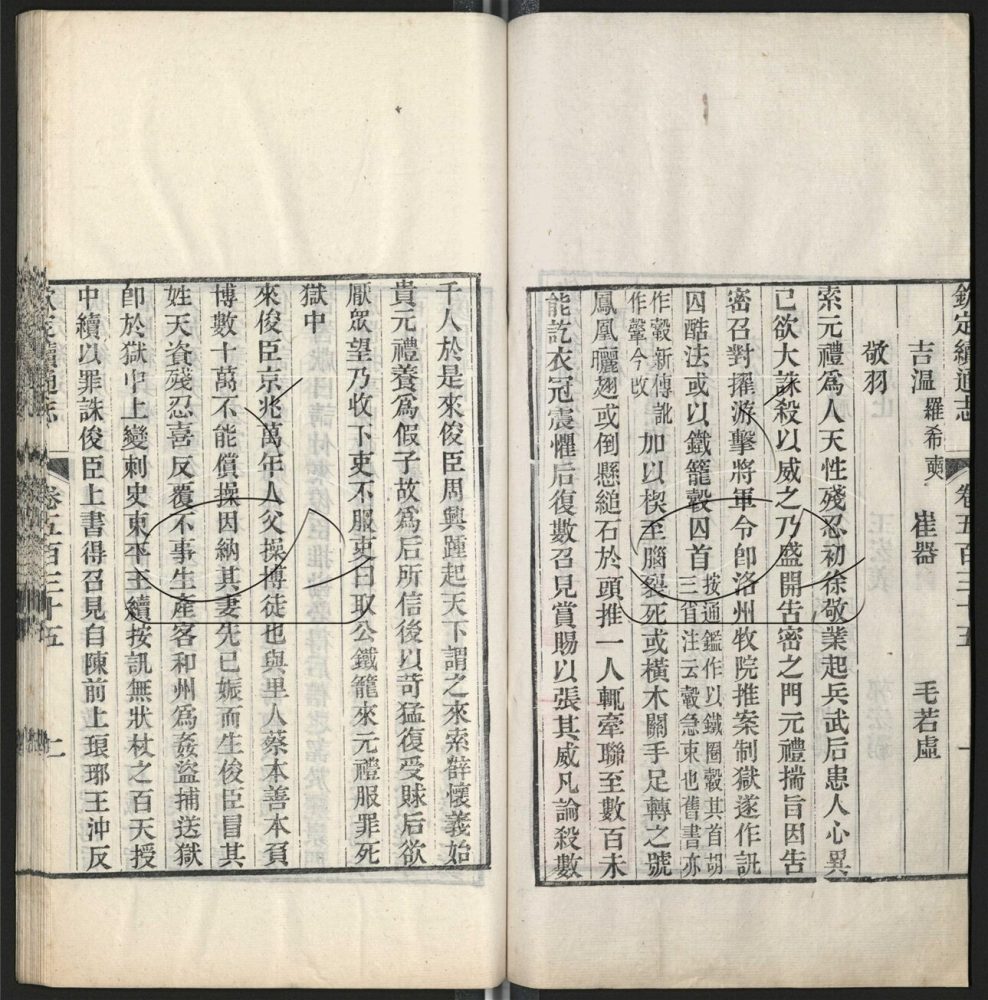 欽定續通志 卷五百三十五 一
吉溫 羅希奭 崔器 毛若虛
敬羽
索元禮爲人天性殘忍初徐敬業起兵武后患人心異
己欲大誅殺以威之乃盛開告密之門元禮揣旨因告
密召對擢游擊將軍令卽洛州牧院推案制獄遂作訊
囚酷法或以鐵籠㲉囚首
按通鑑作以鐵圈㲉其首胡
三省注云㲉急束也舊書亦
作㲉新傳訛
作䩭今改
加以楔至腦裂死或橫木關手足轉之號
鳳凰曬翅或倒懸縋石於頭推一人輒牽聯至數百未
能訖衣冠震懼后復數召見賞賜以張其威凡論殺數
千人於是來俊臣周興踵起天下謂之來索薛懷義始
貴元禮養爲假子故爲后所信後以苛猛復受賕后欲
厭眾望乃收下吏不服吏曰取公鐵籠來元禮服罪死
獄中
來俊臣京兆萬年人父操博徒也與里人蔡本善本負
博數十萬不能償操因納其妻先已娠而生俊臣冒其
姓天資殘忍喜反覆不事生產客和州爲姦盜捕送獄
卽於獄中上變刺史東平王續按訊無狀杖之百天授
中續以罪誅俊臣上書得召見自陳前上琅邪王沖反